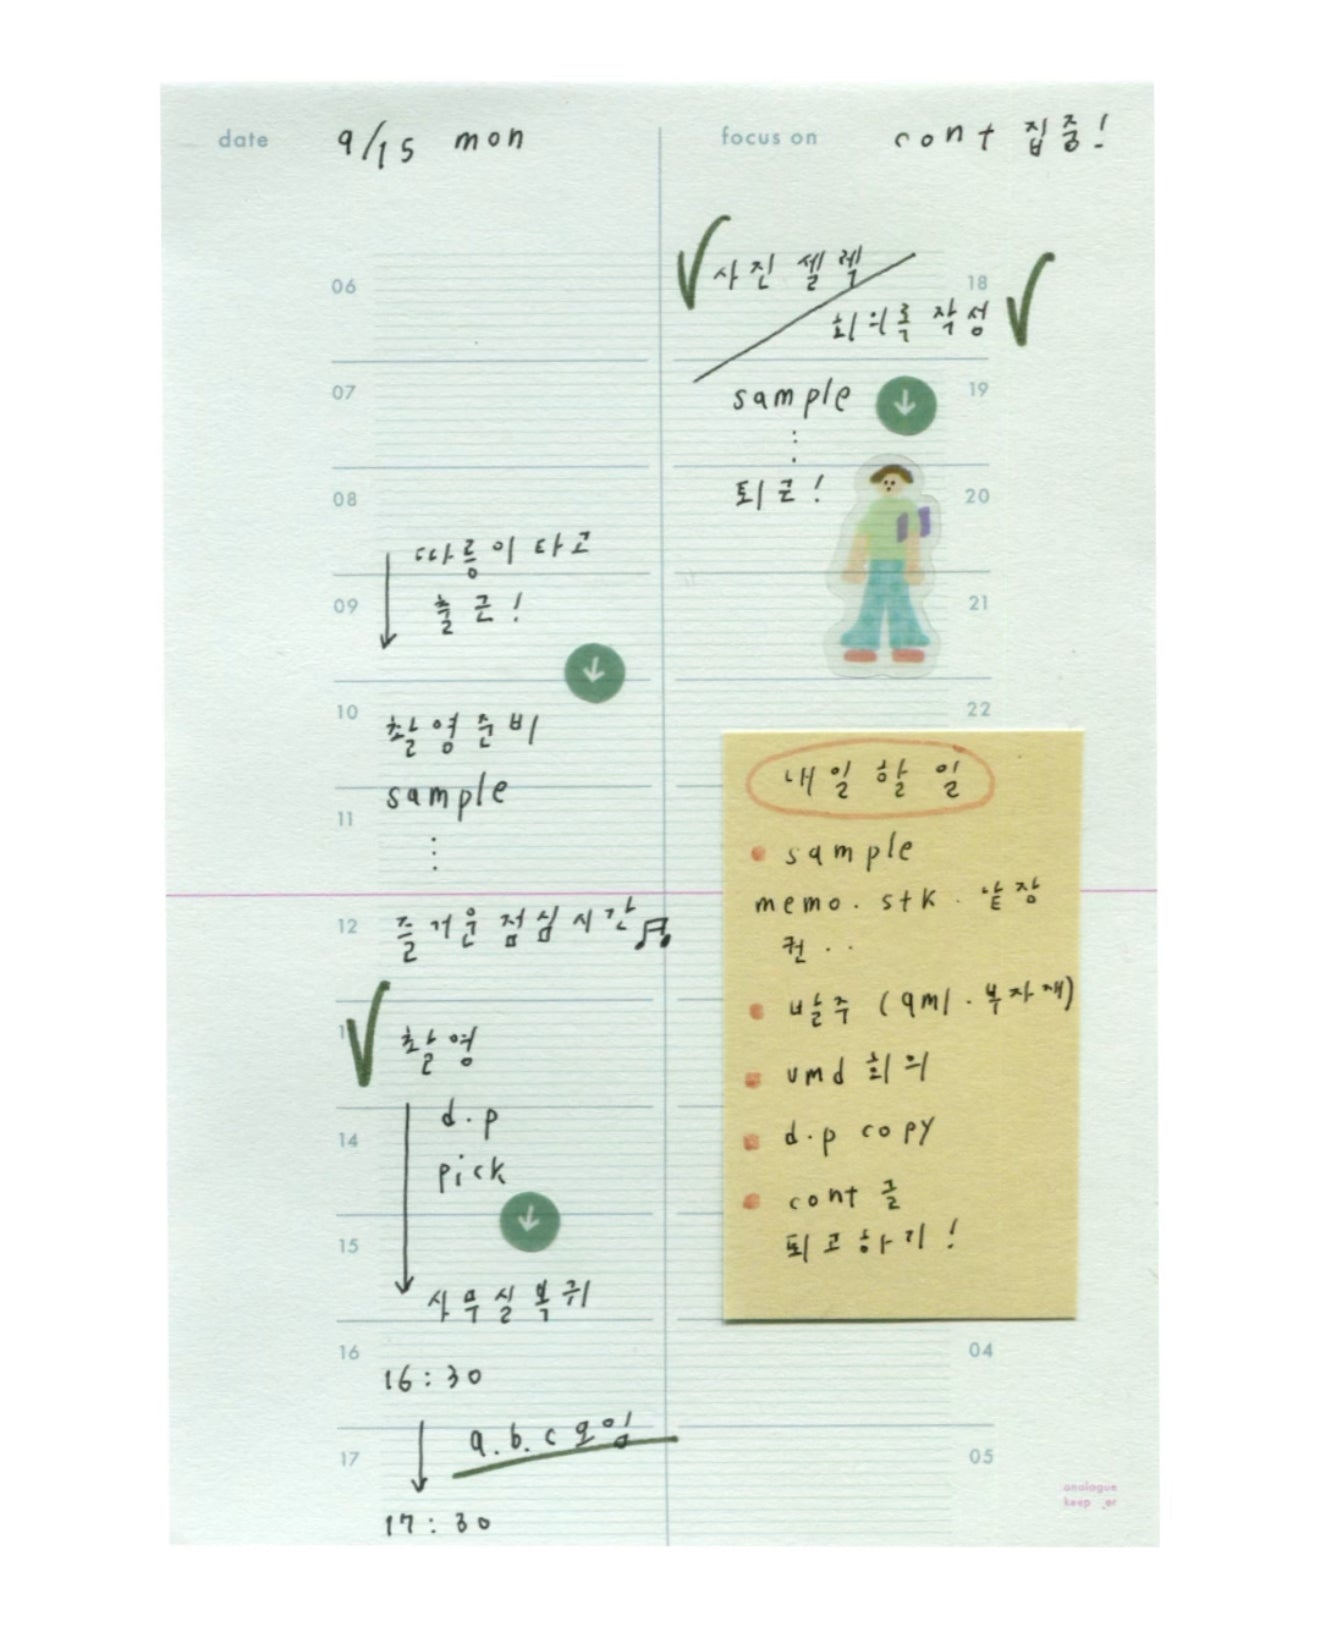 date 9/15 mon
focus on cont 집중!
06
07
08
따릉이 타고
09
출근!
10
촬영준비
sample
11
12
즐거운 점심시간
촬영
d.p
14
pick
15
사무실복귀
16
16:30
a.b.c 모임
17
17:30
사진 셀렉
18
회의록 작성
sample
19
퇴근!
20
21
22
내일 할 일
sample
memo. stk. 낱장
퀀..
발주 (qml.부자재)
vmd 회의
d.p copy
cont 글
퇴고하기!
04
05
analogue
keep_er